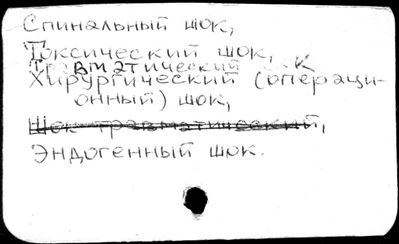 Спинальный шок,
Токсический шок,
Травматический шок
Хирургический (операци-
онный) шок,
Шок травматический,
Эндогенный шок.